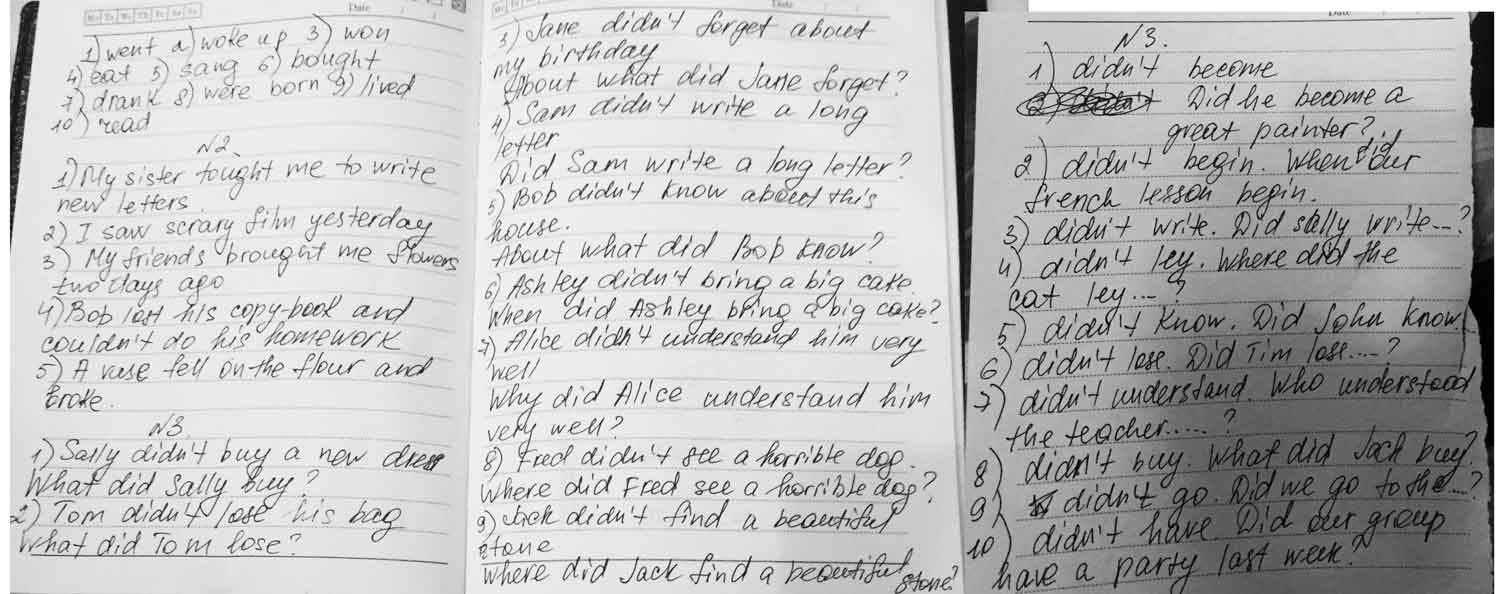 Date
1) went 2) woke up 3) won
4) eat 5) sang 6) bought
7) drank 8) were born 9) lived
10) read
N2
1) My sister tought me to write
new letters
2) I saw scrary film yesterday
3) My friends brought me flowers
two days ago
4) Bob lost his copy-book and
couldn't do his homework
5) A vase fell on the flour and
broke.
N3
1) Sally didn't buy a new dress
What did Sally buy?
2) Tom didn't lose his bag
What did Tom lose?
Date
3) Jane didn't forget about
my birthday
About what did Jane forget?
4) Sam didn't write a long
letter
Did Sam write a long letter?
5) Bob didn't know about this
house.
About what did Bob know?
6) Ashley didn't bring a big cake.
When did Ashley bring a big cake?
7) Alice didn't understand him very
well
Why did Alice understand him
very well?
8) Fred didn't see a horrible dog.
Where did Fred see a horrible dog?
9) Jack didn't find a beautiful
stone
Where did Jack find a beautiful
stone?
Date
N3.
1) didn't become
Did he become a
great painter?
2) didn't begin. When did our
french lesson begin.
3) didn't write. Did sally write...?
4) didn't ley. Where did the
cat ley...?
5) didn't know. Did John know
6) didn't lose. Did Tim lose....?
7) didn't understand. Who understood
the teacher.....?
8) didn't buy. What did Jack buy?
9) didn't go. Did we go to the...?
10) didn't have. Did our group
have a party last week?